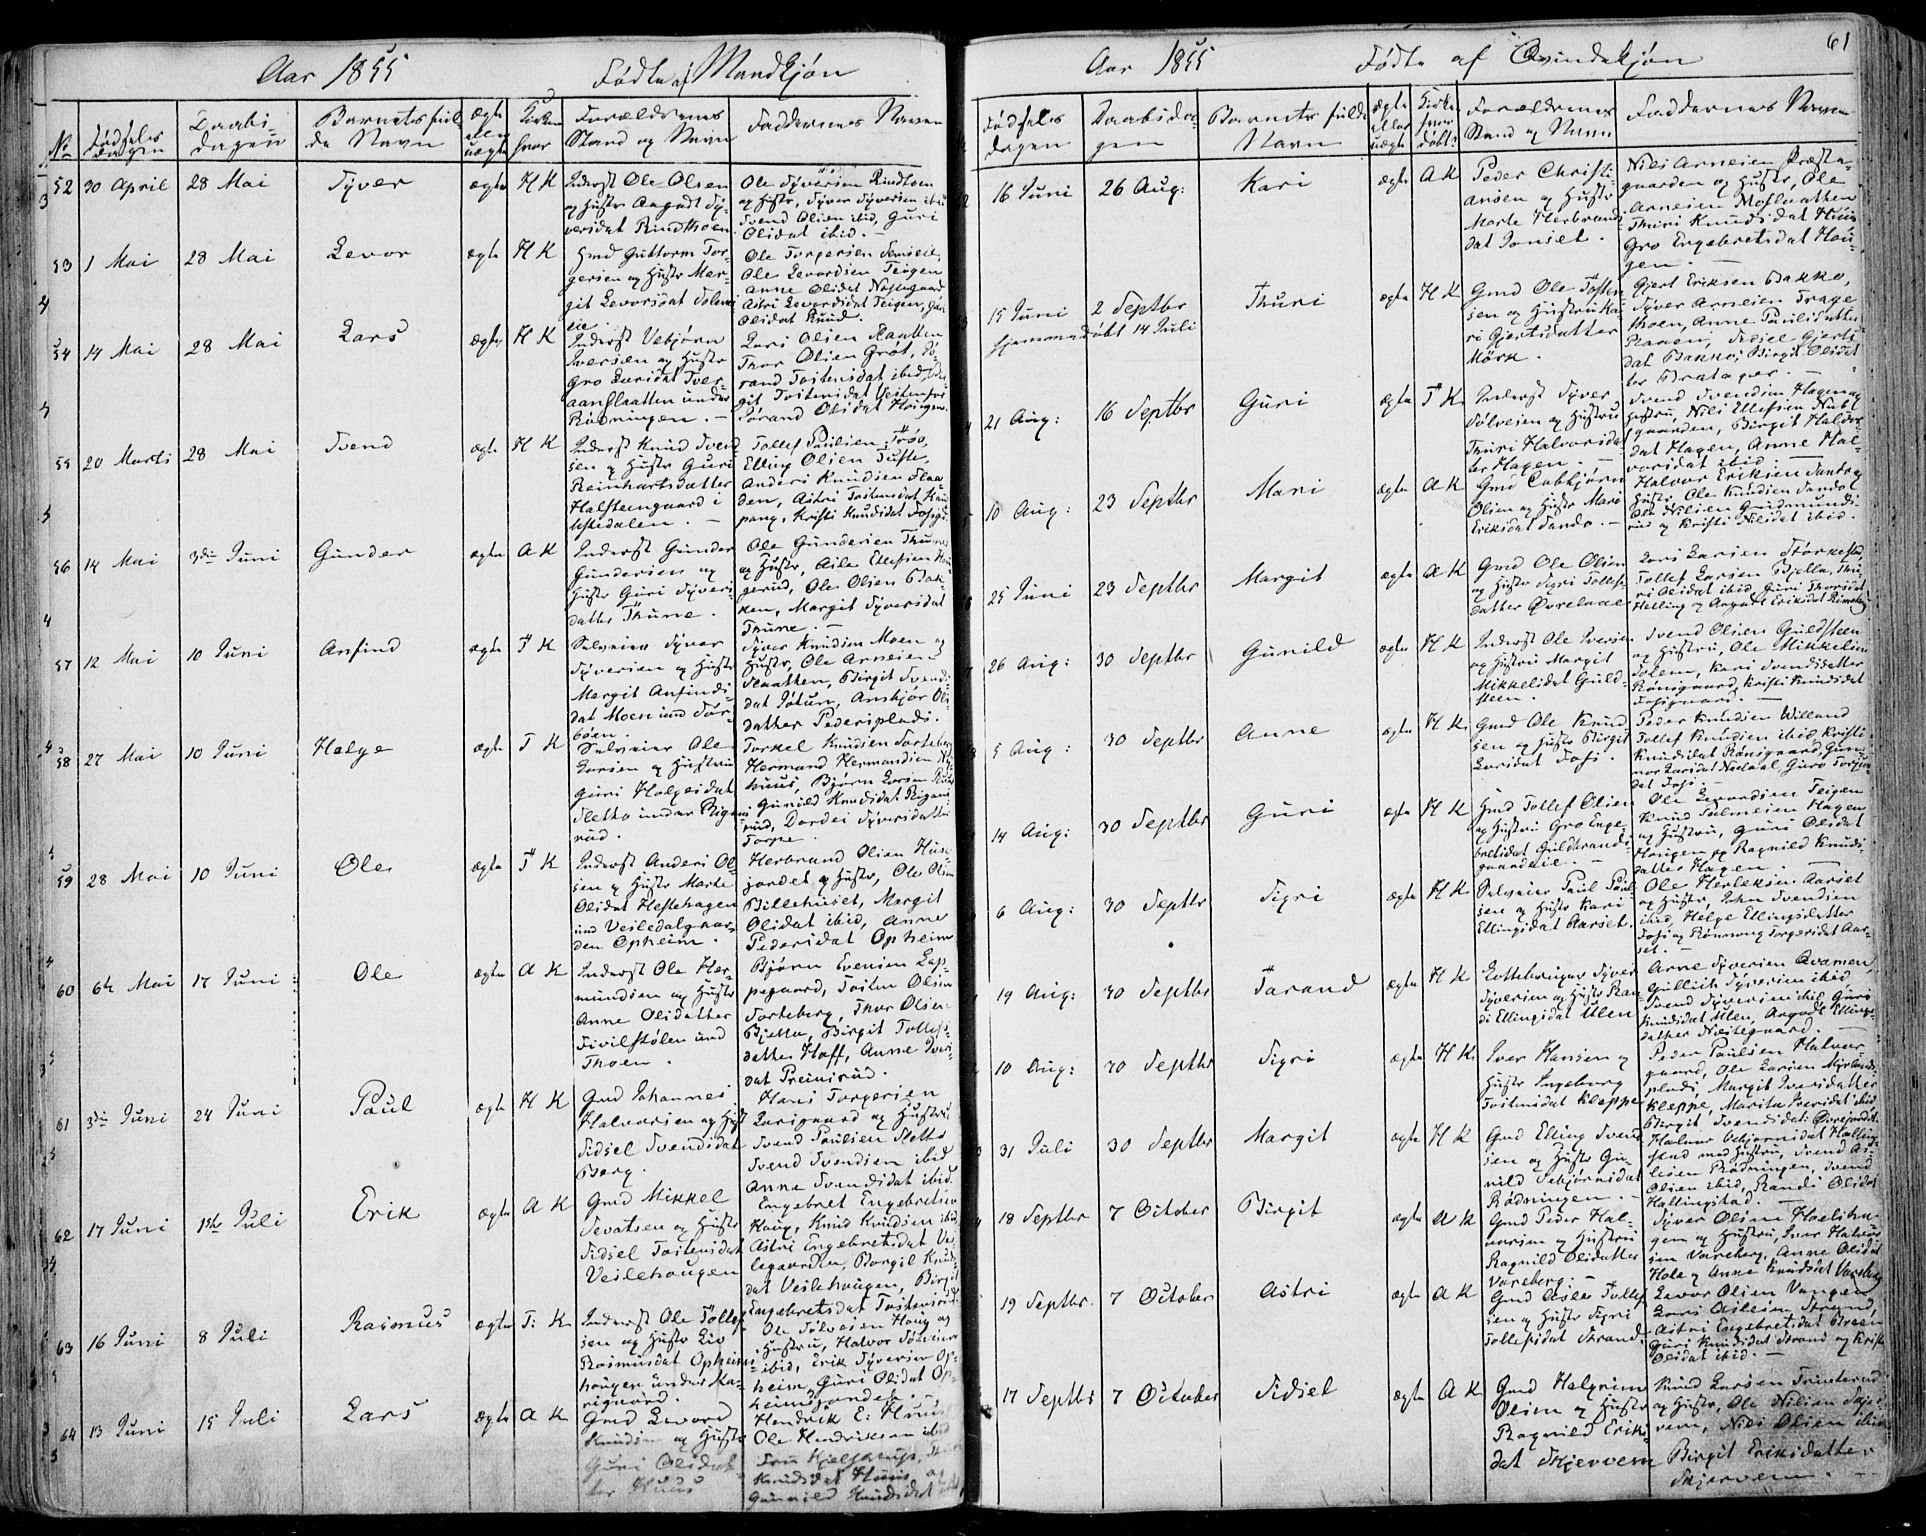 Aar 1855
Fødte af Mandkjøn
No
Fødselsdagen
Daabsdagen
Barnets fulde Navn
ægte eller uægte
Kirken hvor
Forældrenes Stand og Navn
Faddernes Navn
52 30 April 28 Mai Syver ægte H K
Inderst Ole Olsen
og Hustr Aagodt Sy-
versdat Rindthoen
Ole Syversen Rindthoen
og Hustr, Syver Syversen ibid
Svend Olsen ibid, Guri
Olsdat ibid.
53 1 Mai 28 Mai Levor ægte H K
Gmd Guttorm Tor-
gersen og Hustr Mar-
git Levorsdat
Ole Torgersen
Ole Levordsen Teigen
Anne Olsdat
Astri Levordsdat Teigen,
Olsdat Ruud.
54 14 Mai 28 Mai Lars ægte H K
Inderst Vebjørn
Iversen og Hustr
Gro Larsdat
under
Rødningen.
Lars Olsen Flaatten
Thor Olsen Grøt,
rand Tostensdat ibid,
git Tostensdat
Jørand Olsdat Hougen
55 20 Marts 28 Mai Svend ægte H K
Inderst Knud Svend-
sen og Hustr Guri
Reinhartsdatter
Halsteensgaard i
Uksedalen.
Tollef Paulsen Trøo,
Elling Olsen Tufte,
Anders Knudsen Flaa-
den, Astri Tostensdat
Kristi Knudsdat
56 14 Mai 3die Juni Gunder ægte A K
Inderst Gunder
Gundersen og
Hustr Guri Syvers-
datter Thune.
Ole Gundersen Thune
og Hustr, Asle Ellefsen
gerud, Ole Olsen Bak-
ken, Margit Syversdat
Thune.
57 12 Mai 10 Juni Anfind ægte T K
Selveier Syver
Syversen og Hustr
Margit Anfinds-
dat Moen und Tor-
bøen.
Syver Knudsen Moen og
Hustr, Ole Arnesen
Flaatten, Birgit Svends-
dat Jotun, Anskjær Ols-
datter Pedersplads.
58 27 Mai 10 Juni Helge ægte T K
Selveier Ole
Larsen og Hustru
Guri Helgesdat
Sletto under Rigens-
rud.
Torkel Knudsen Torteberg
Hermand Hermandsen
huus, Bjørn Larsen
Gunild Knudsdat Rigens-
rud, Dordei Syversdatter
Torpe.
59 28 Mai 10 Juni Ole ægte T K
Inderst Anders Ol-
sen og Hustr Marte
Olsdat Hestehagen
und Veiledalgaar-
den Opheim.
Herbrand Olsen Huse-
jordet og Hustr, Ole Olsen
Billehuset, Margit
Olsdat ibid, Anne
Pedersdat Opheim
60 6te Mai 17 Juni Ole ægte A K
Inderst Ole Her-
mundsen og Hustr
Anne Olsdatter
Sivilstølen und
Thoen.
Bjørn Evensen Lap-
pegaard, Tosten Olsen
Torteberg, Thor Olsen
Bjella, Birgit Tollefs-
datter Hoff, Anne Ivers-
dat Preinsrud.
61 3die Juni 24 Juni Paul ægte H K
Gmd Johannes
Halvorsen og Hustr
Sidsel Svendsdat
Berg.
Hans Torgersen
Larsgaard og Hustru
Svend Paulsen Sletto
Svend Svendsen ibid
Anne Svendsdat ibid.
62 17 Juni 1ste Juli Erik ægte A K
Gmd Mikkel
Sevatsen og Hustr
Sidsel Tostensdat
Veslehougen
Engebret Engebretsen
Houg, Knud Knudsen ibid,
Astri Engebretsdat Ves-
legaarden, Borgil Knuds-
dat Veslehougen, Birgit
Engebretsdat Tostensrud.
63 16 Juni 8 Juli Rasmus ægte T: K
Inderst Ole Tollef-
sen og Hustr Liv
Rasmusdat Opheims-
hougen under
Ole Sølvesen Houg og
Hustru, Halvor
ibid, Erik Syversen Op-
heim, Guri Olsdat Op-
heimsjordet.
64 13 Juni 15 Juli Lars ægte A K
Gmd Levord
Knudsen og Hustr
Guri Olsdat-
ter Huus
Hendrik E: Huus
Ole Hendriksen ibid
Fru Hjelstrup,
Knudsdat Huus og
Gunnild Knudsdat
61
Aar 1855
Fødte af Qvindekjøn
Fødselsdagen
Daabsdagen
Barnets fulde Navn
ægte eller uægte
Kirke hvor døbt?
Forældrenes Stand og Navn
Faddernes Navn
16 Juni 26 Aug: Kari ægte A K
Peder Christi-
ansen og Hustr
Marte Herbrands-
dat Jonset.
Niels Arnesen Præste-
gaarden og Hustr, Ole
Arnesen Moslaatten
Thuri Knudsdat Huus
Gro Engebretsdat Hou-
gen.
15 Juni 2 Septbr Thuri ægte H K
hjemmedøbt 14 Juli
Gmd Ole Tosten-
sen og Hustru Ka-
ri Gjertsdatter
Mørk.
Gjert Eriksen Bakko,
Syver Arnesen Trage-
thoen, Anne Paulsdatter
Haaen, Sidsel Gjerts-
dat Bakko, Birgit Olsdat-
ter Bratager.
21 Aug: 16 Septbr Guri ægte T K
Inderst Syver
Sølvesen og Hustru
Thuri Halvorsdat-
ter Hagen.
Svend Svendsen Hagen og
Hustru, Nils Ellefsen Nubl-
gaarden, Birgit Haldor-
dat Hagen, Anne Hal-
vorsdat ibid.
10 Aug: 23 Septbr Mari ægte A K
Gmd Cubbjørn
Olsen og Hustr Mari
Eriksdat Sando.
Halvor Eriksen Sando og
Hustr, Ole Knudsen Sando
Ole Nilsen Gudmunds-
rud og Kristi Nilsdat ibid.
25 Juni 23 Septbr Margit ægte A K
Gmd Ole Olsen
og Hustr Sigri Tollefs-
datter Øvrelae
Lars Larsen Størkesløb
Tollef Larsen Bjella, Thu-
ri Olsdat ibid, Guri Thorsdat
Helling og Aagodt Eriksdat
26 Aug: 30 Septbr Gunild ægte H K
Inderst Ole Iversen
og Hustru Margit
Mikkelsdat Guld-
steen.
Svend Olsen Guldsteen
og Hustru, Ole Mikkelsen
Solem, Kari Svendsdatter
Rønsgaard, Kristi Knudsdat
Fosgaard.
5 Aug: 30 Septbr Anne ægte H K
Gmd Ole Knud-
sen og Hustr Birgit
Larsdat Foss.
Peder Knudsen Willand
Tollef Knudsen ibid, Kristi
Knudsdat Rønsgaard, Gun-
nor Larsdat Nedaal, Guro Torjus-
dat Foss.
14 Aug: 30 Septbr Guri ægte H K
Gmd Tollef Olsen
og Hustru Gro Enge-
bretsdat Guldbrands-
gaardeie.
Ole Levordsen Teigen
Knud Salmesen Hagen
og Hustru, Guri Olsdat
Hougen og Ragnild Knuds-
datter Hagen.
6 Aug: 30 Septbr Sigri ægte H K
Selveier Paul Paul-
sen og Hustr Kari
Ellingsdat Aarset.
Ole Herleksen Aarset
og Hustr, John Svendsen
ibid, Helge Ellingsdatter
Foss og Rønnoug Torgersdat Aar-
set.
19 Aug: 30 Septbr Tarand ægte H K
Syver
Syversen og Hustr Ran-
di Ellingsdat Ulen
Arne Syversen Qvamen,
Gullich Syversen ibid
Svend Syversen ibid, Guri
Knudsdat Ulen, Aagodt Ellings-
datter Nestegaard.
10 Aug: 30 Septbr Sigri ægte H K
Iver Hansen og
Hustr Ingeborg
Tostensdat Kleppe
Peder Paulsen Halvor-
gaard, Ole Larsen Myrlands-
plads, Margit Iversdatter
Kleppe, Marita Iversdat ibid
Birgit Svendsdat
31 Juli 30 Septbr Margit ægte H K
Gmd Elling Svend-
sen og Hustr Gu-
nild Vebjørnsdat
Rødningen.
Halvor Vebjørnsdat Halling-
stad med Hustru, Svend As-
lesen Rødningen, Svend
Olsen ibid, Randi Olsdat
Hallingstad.
18 Septbr 7 October Birgit ægte A K
Gmd Peder Hal-
vorsen og Hustru
Ragnild Olsdatter
Vareberg.
Syver Olsen
gen og Hustru, Ivar Halvor-
sen Vareberg, Anne Olsdat
Hola og Anne Knudsdat Vareberg
19 Septbr. 7 October Astri ægte A K
Gmd Asle Tollef-
sen og Hustr Sigri
Tollefsdat Strand.
Levor Olsen Vangen
Lars Aslesen Strand,
Astri Engebretsdat Breen
Guri Knudsdat Strand og Kristi
Olsdat ibid.
17 Septbr 7 October Sidsel ægte A K
Gmd Halgrim
Olsen og Hustr
Ragnild Eriks-
dat Skjervem
Knud Larsen Trinterud
og Hustr, Ole Nilsen
vem, Nils Olsen ibid
Birgit Eriksdatter
Skjervem.